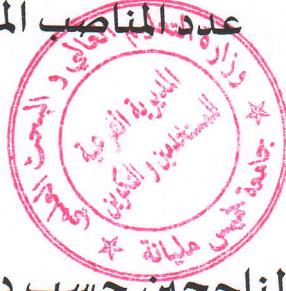 عدد المناصب
وزارة التعليم العالي و البحث العلمي
المديرية الفرعية
للمستخدمين و التكوين
جامعة خميس مليانة
حسب